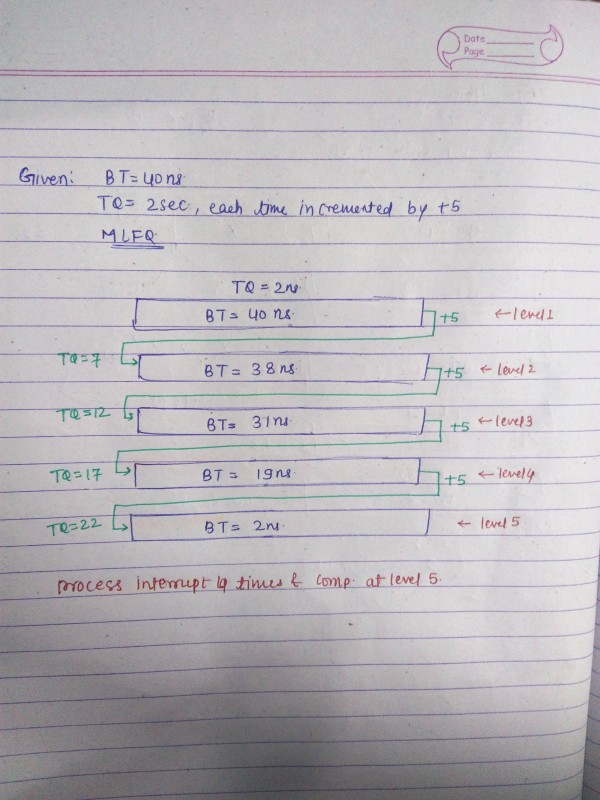 Date
Page
Given: BT=40ns
TQ= 2sec, each time incremented by +5
MLFQ
TQ=2ns
BT= 40 ns. +5 ←level1
TQ=7 BT= 38ns. +5 ← level2
TQ=12 BT= 31ns. +5 ← level3
TQ=17 BT= 19ns. +5 ← level4
TQ=22 BT= 2ns. ← level 5
process interrupt 4 times & comp. at level 5.